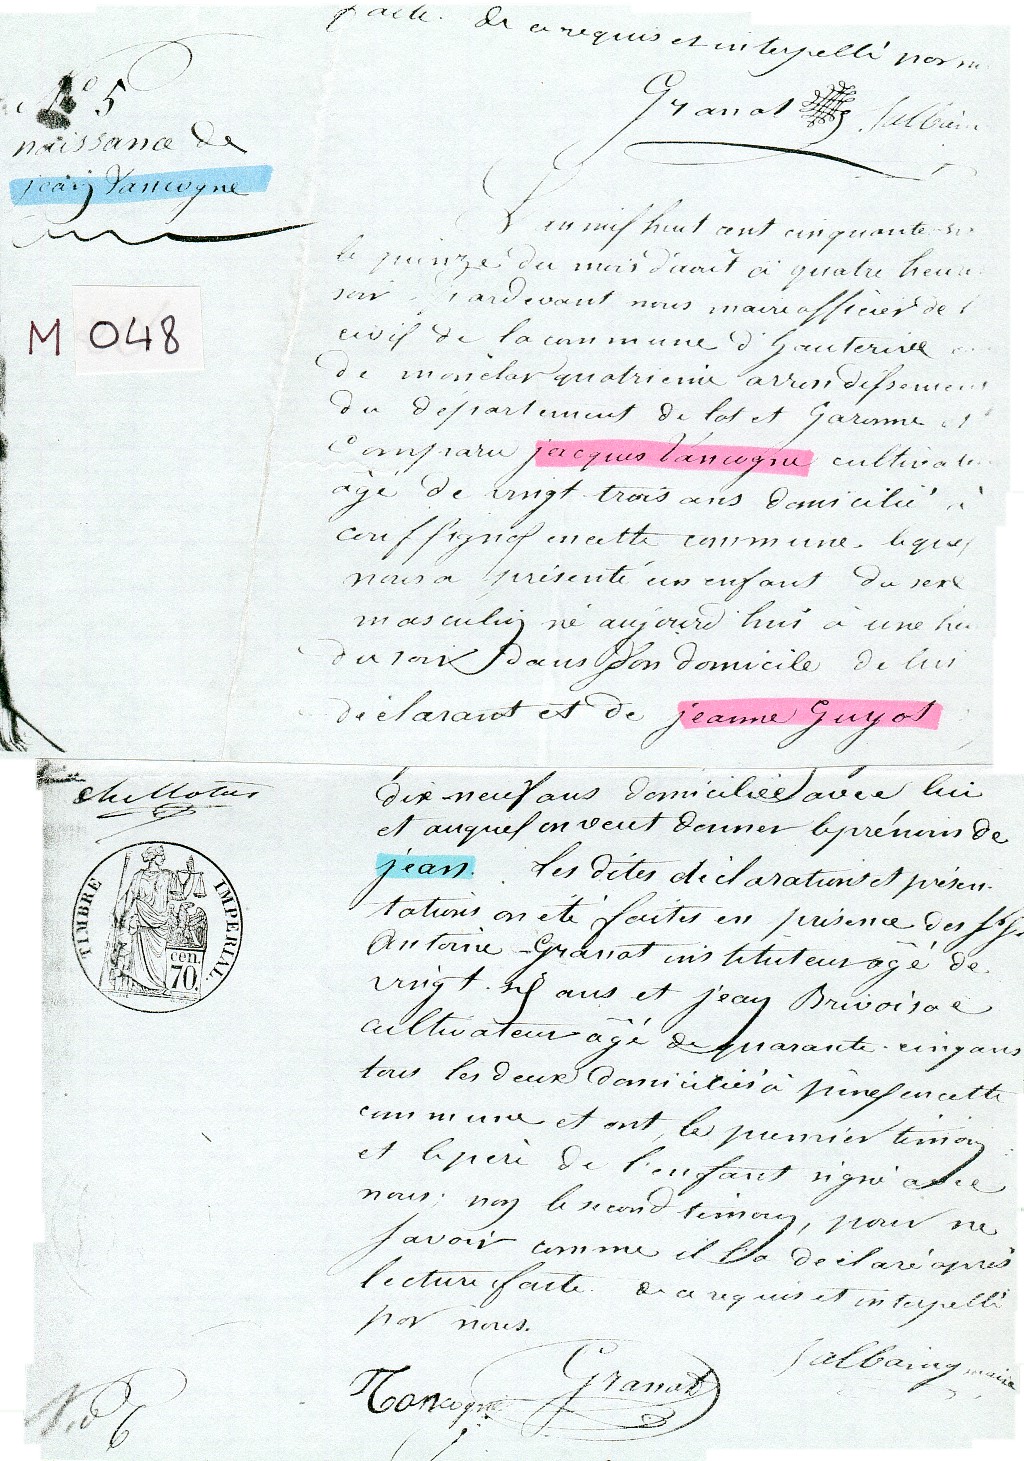 faite. De ce requis et interpellé par n
Granat Salbaing
N° 5
naissance de
jean Vancogne
M 048
L'an mil huit cent cinquante-
le quinze du mois d'août à quatre heur
soir Pardevant nous maire officier de l
civil de la commune d'Hauterive
de monclar quatrieme arrondissement
du département de lot et Garonne est
Comparu jacques Vancogne cultivat
âgé de vingt-trois ans domicilié à
en cette commune. lequel
nous a présenté un enfant du sexe
masculin né aujourd'hui à une heu
du soir dans son domicile de lui
déclarant et de jeanne Guyot
dix-neuf ans domiciliée avec lui
et auquel on veut donner le prénoms de
jean. les dites déclarations et présen-
tations on été faites en présence des Srs
Antoine Granat instituteur âgé de
vingt- ans et jean Brivoisac
cultivateur âgé de quarante-cinq ans
tous les deux domiciliés à en cette
commune et ont, le premier témoin
et le père de l'enfant signé avec
nous; non le second témoin, pour ne
savoir comme il l'a déclaré après
lecture faite. de ce requis et interpellé
par nous.
TIMBRE IMPERIAL.
cen.
70.
Salbaing maire
Vancogne Granat
No 6